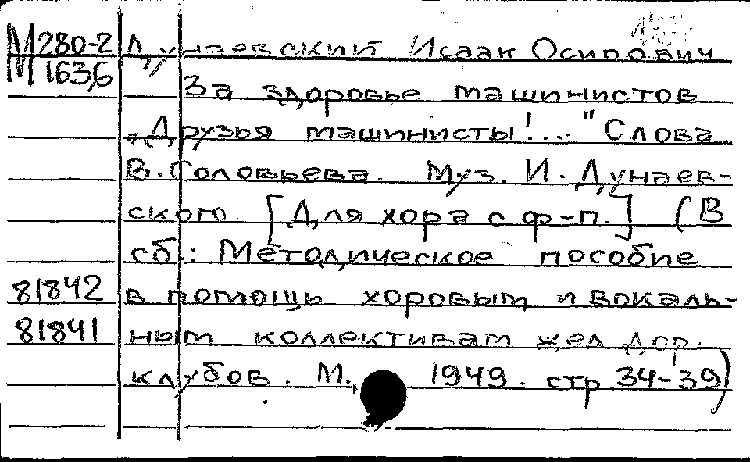 М280-2 Дунаевский Исаак Осипович
М1636 За здоровье машинистов
„Друзья машинисты!..." Слова
В. Соловьева. Муз. И. Дунаев-
ского [Для хора с ф-п.] (В
сб.: Методическое пособие
81842 в помощь хоровым и вокаль-
81841 ным коллективам жел. дор.
клубов. М., 1949. стр 34-39)